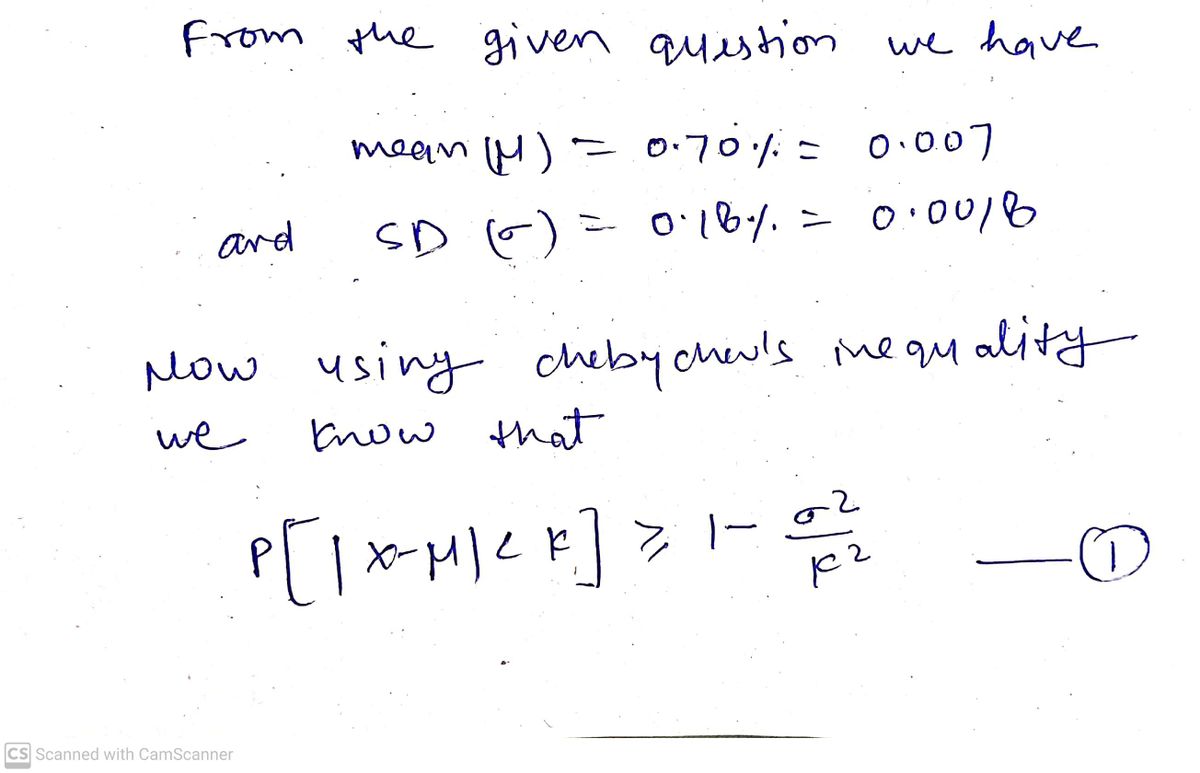 From the given question we have
mean (μ) = 0.70% = 0.007
and SD (σ) = 0.18% = 0.0018
Now using chebychev's inequality
we know that
P[|x-μ| < k] ≥ 1 - σ²/k² — ①
CS Scanned with CamScanner